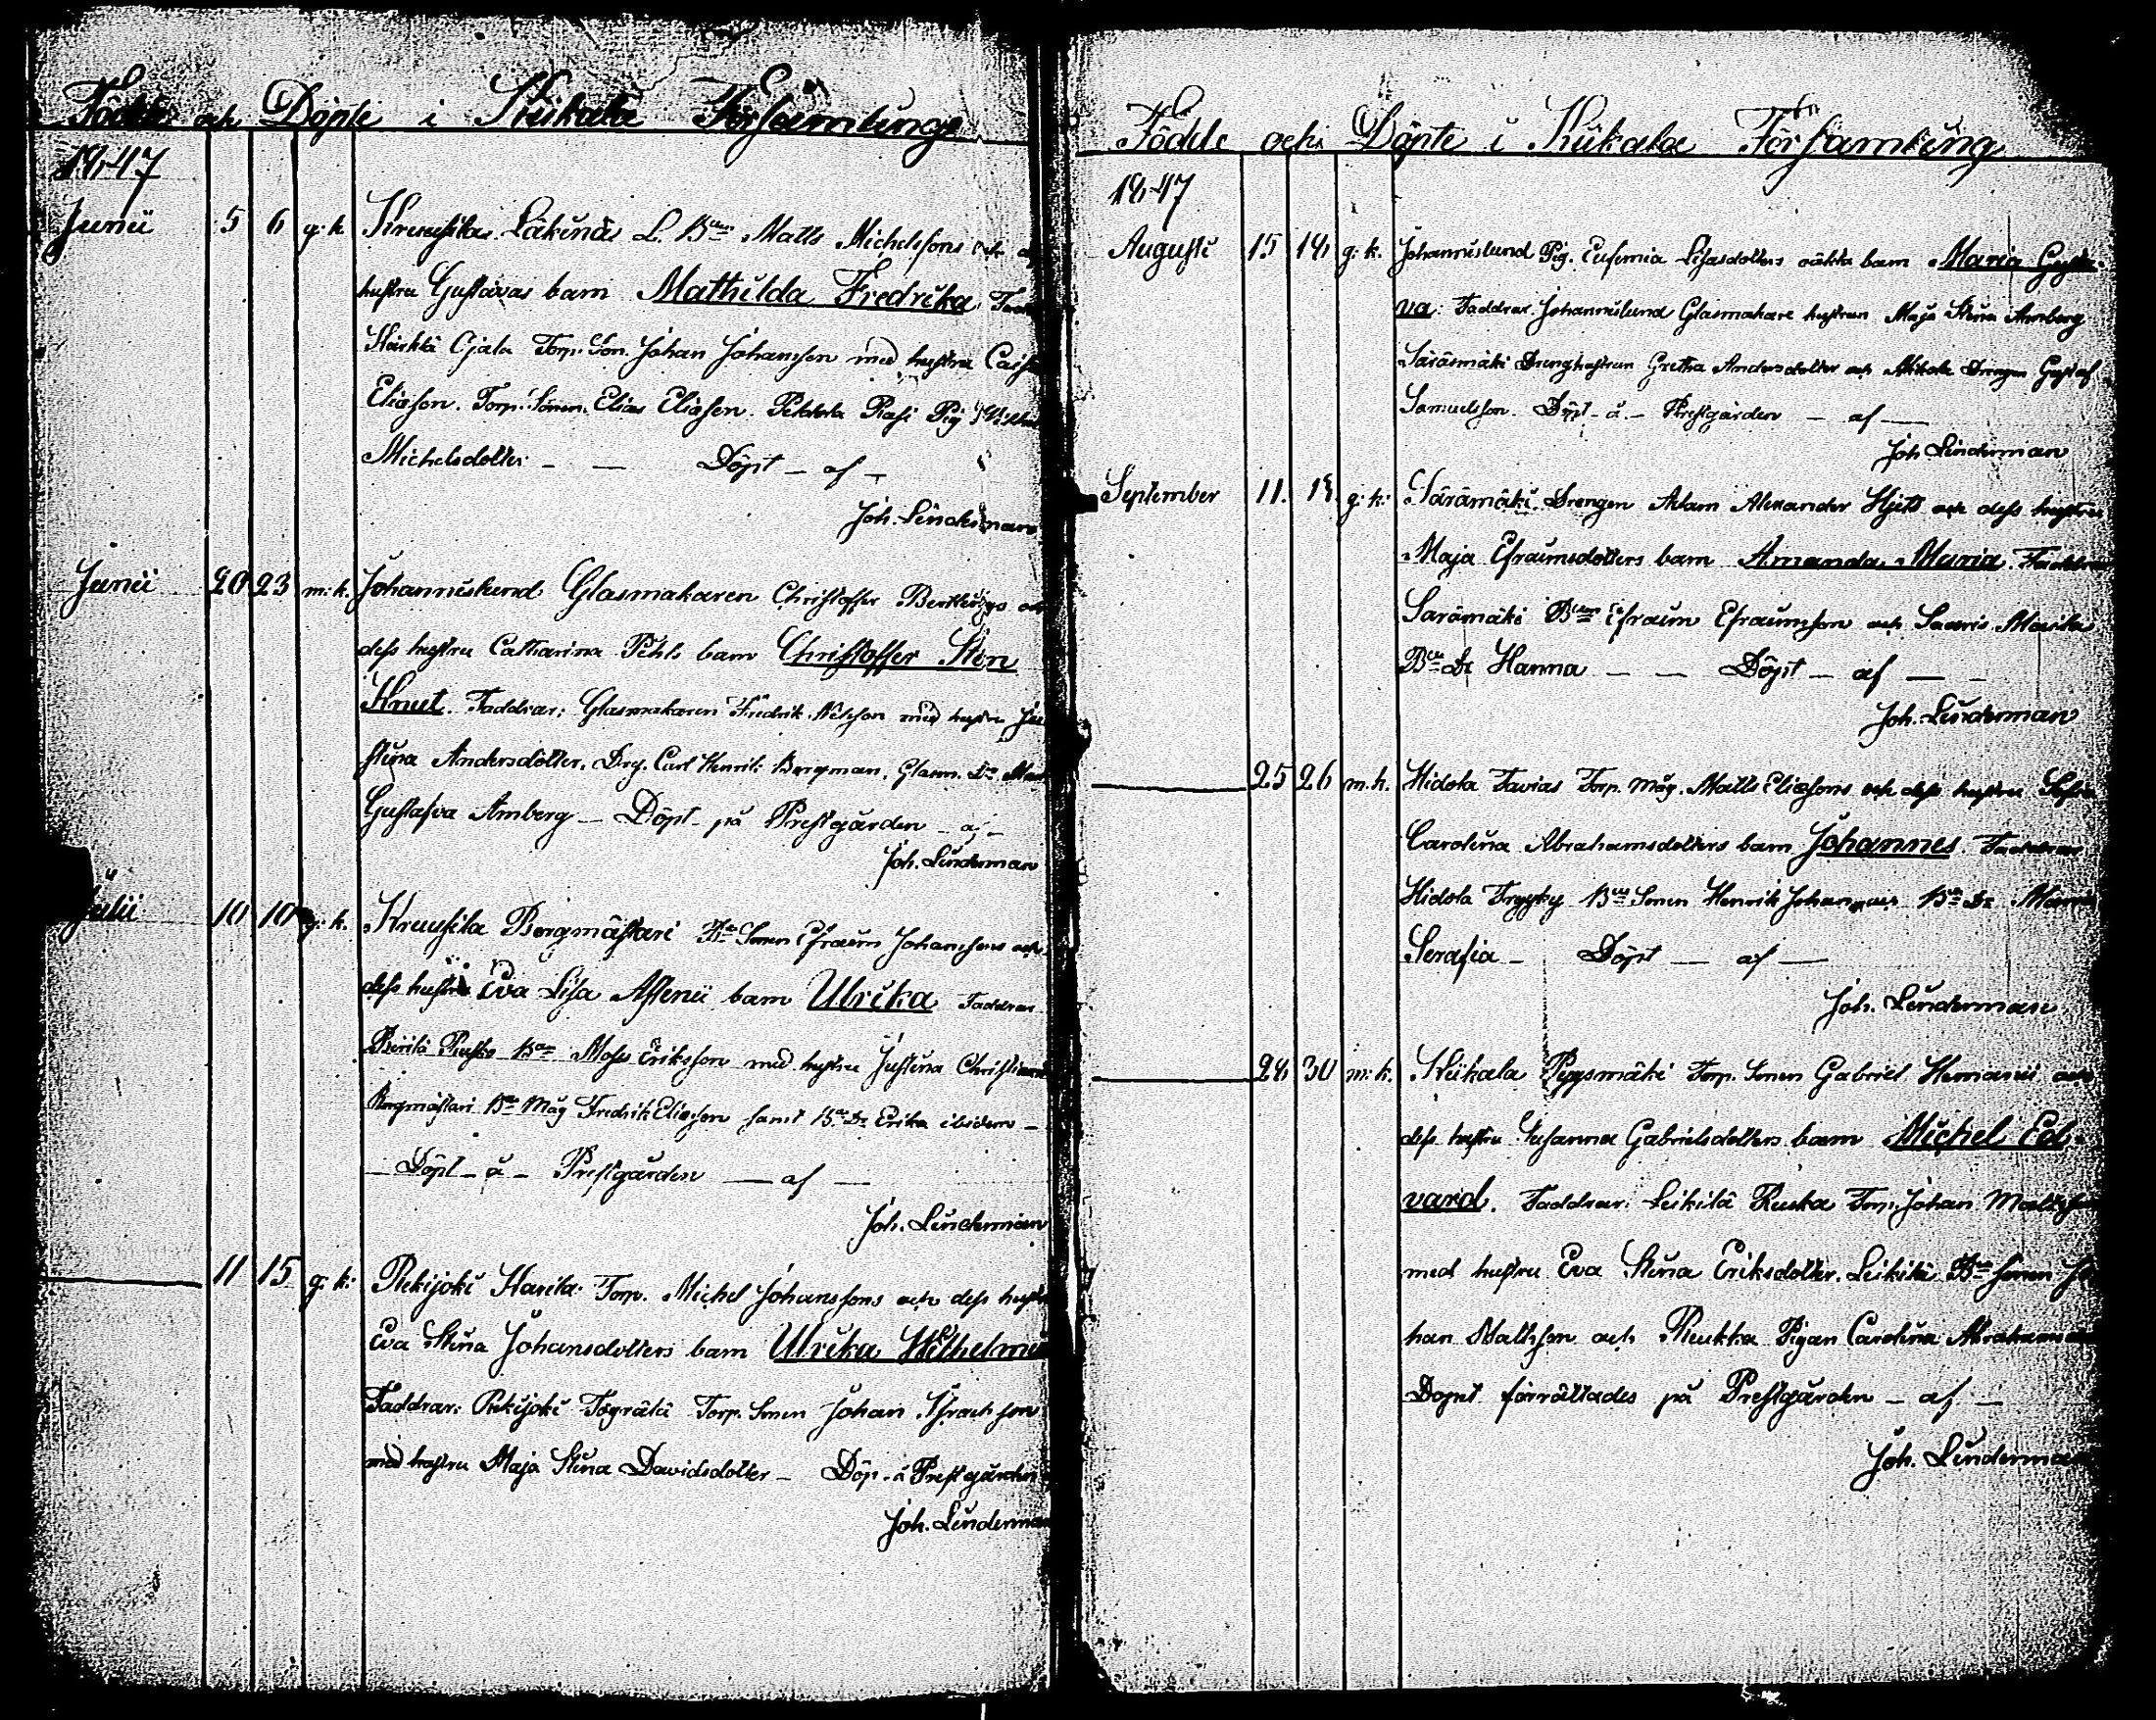 Födde och Döpte i Kiikala Församling
1847
Junii 5 6 g: k. Kruusila Läkinä L. Bdn Matts Michelssons och
hustru Gustavas barn Mathilda Fredrika.
Ojala Torp. Son. Johan Johansson med hustru
Eliæson. Torp. Sonen Elias Eliæson. Pig
Michelsdotter — — Döpt — af —
Joh. Linderman
Junii 20 23 m: k. Johannislund Glasmakaren Christoffer
dess hustru Catharina Pehls barn Christoffer Sten
Knut. Faddrar: Glasmakaren Fredrik med hustru Ju
stina Andersdotter. Drg. Carl Henrik Bergman.
Gustafva Arnberg — Döpt — på Prestgården — af —
Joh. Linderman
Julii 10 10 g: k. Kruusila Borgmästari Bde Sonen Efraim Johanssons och
dess hustru Eva Lisa Astenii barn Ulrika Faddrar
Moses Eriksson med hustru Justina
Borgmästari Bde Måg Fredrik Eliæson samt Bde Dr Erika ibidem —
— Döpt — å — Prestgården — af —
Joh. Linderman
11 15 g: k: Rekijoki Torp. Michel Johanssons och dess hustru
Eva Stina Johansdotters barn Ulrika Wilhelmi
Faddrar: Rekijoki Torp. Sonen Johan
med hustru Maja Stina Davidsdotter — Döp. å Prestgården
Joh. Linderman
Födde och Döpte i Kiikala Församling
1847
Augusti 15 18 g: k. Johannislund Pig. Eufemia Lisasdotters oäkta barn Maria Gusta
va: Faddrar. Johannislund Glasmakare hustrun Maja Stina Arnberg
Särämäki Drenghustrun Gretha Andersdotter och Drengen Gustaf
Samuelsson. Döpt — å — Prestgården — af —
Joh Linderman
September 11. g: k: Särämäki Drengen Adam Alexander och dess hustru
Maja Efraimsdotters barn Amanda Maria. Faddrar
Särämäki Bden Efraim Efraimsson och
Bde Dr Hanna — — Döpt — af — —
Joh. Linderman
25 26 m. k. Hidola Torp. Måg. Matts Eliæsons och dess hustru
Carolina Abrahamsdotters barn Johannes. Faddrar
Hidola Bde Sonen Henrik Bde Dr
Serafia — Döpt — af —
Joh. Linderman
28 30 m: k. Kiikala Torp. Sonen Gabriel och
dess hustru Susanna Gabrielsdotters barn Michel Ed-
vard. Faddrar: Leikilä Torp. Johan
med hustru Eva Stina Eriksdotter. Leikilä Bde sonen Jo
han Mattsson och Pigan Carolina
Dopet förrättades på Prestgården — af —
Joh. Linderman